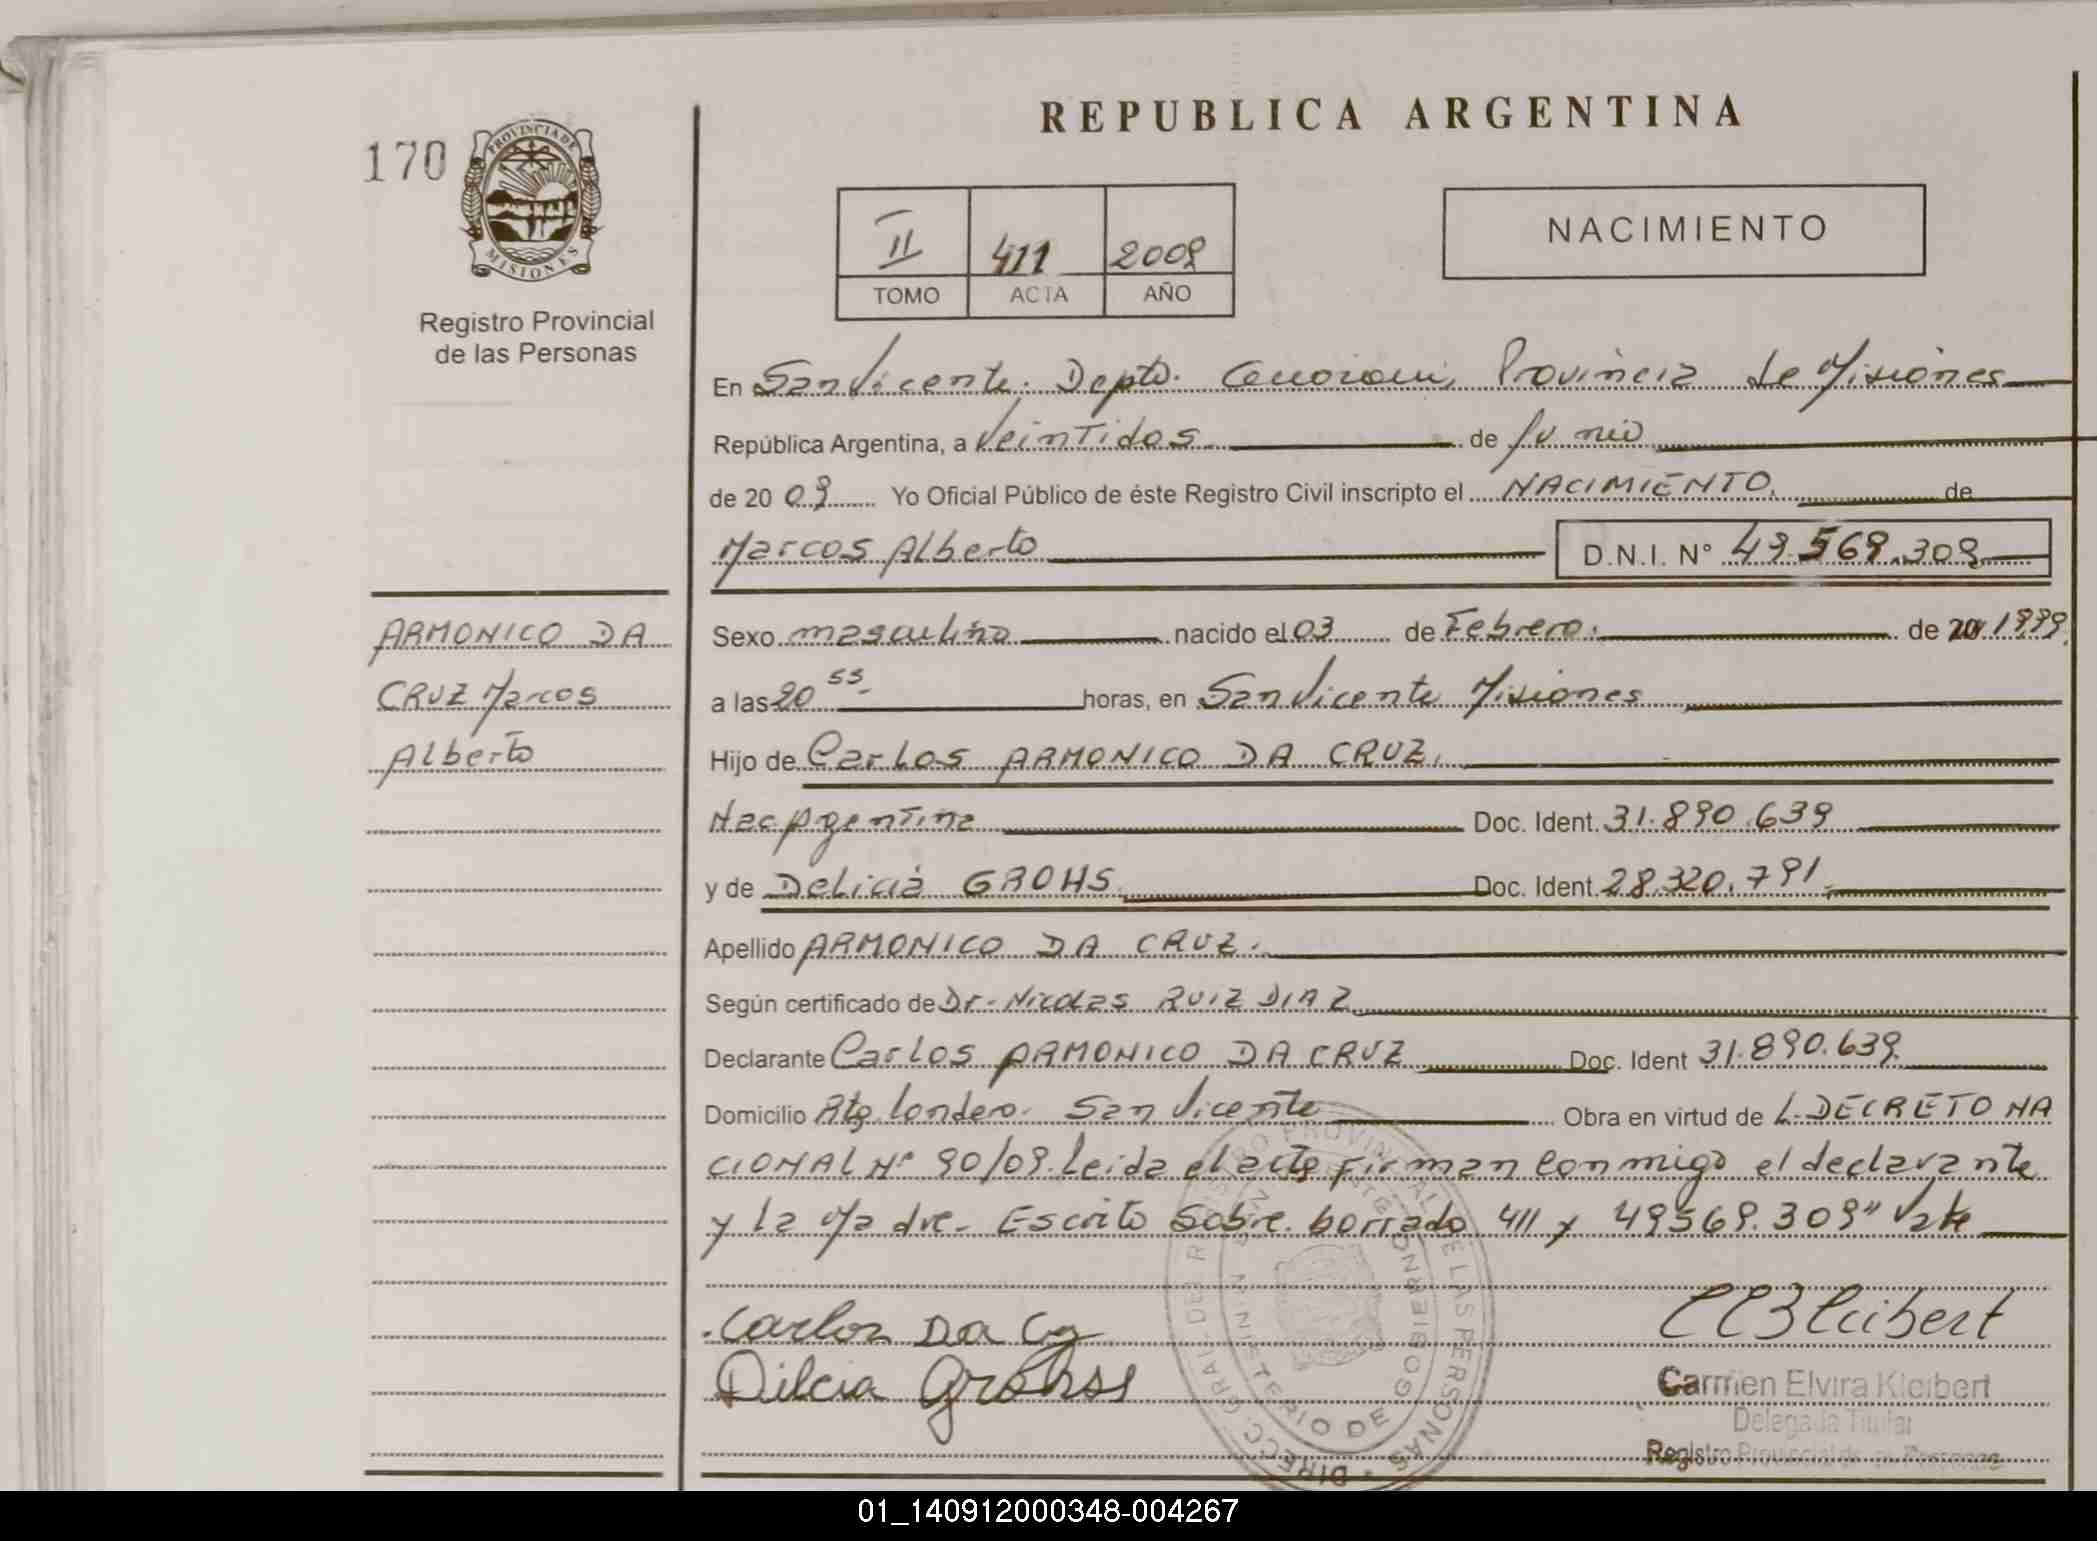 REPUBLICA ARGENTINA
170
PROVINCIA DE
MISIONES
Registro Provincial
de las Personas
II 411 2009
TOMO ACTA AÑO
NACIMIENTO
En San Vicente. Depto. Provincia de Misiones
República Argentina, a Veintidos de Junio
de 20 09 Yo Oficial Público de éste Registro Civil inscripto el NACIMIENTO. de
Marcos Alberto D.N.I. N° 49.569.309
ARMONICO DA
CRUZ Marcos
Alberto
Sexo masculino nacido el 03 de Febrero. de 20 1999
a las 20 55 horas, en San Vicente Misiones
Hijo de Carlos ARMONICO DA CRUZ.
Nac Argentina Doc. Ident. 31.890.639
y de Delicia GROHS Doc. Ident. 28.320.791
Apellido ARMONICO DA CRUZ.
Según certificado de Dr. Nicolas RUIZ DIAZ
Declarante Carlos ARMONICO DA CRUZ Doc. Ident 31.890.639
Domicilio Londero. San Vicente Obra en virtud de L. DECRETO NA
CIONAL N° 90/09. Leida el acta firman conmigo el declarante
y la Madre. Escrito sobre borrado 411 y 49569.309" Vale
Carlos Da
Dilcia Grohss
Carmen Elvira Kleibert
Delegada Titular
Registro Provincial de las Personas
DIRECC. GRAL. DEL REGISTRO PROVINCIAL DE LAS PERSONAS
MINISTERIO DE GOBIERNO
01_140912000348-004267